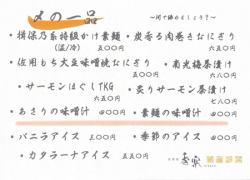 〆の一品
〜何で締めましょう？〜
・揖保乃糸特級かけ素麺
(温/冷) 五〇〇円
・炭香る肉巻きなにぎり
六五〇円
・佐用もち大豆味噌焼なにぎり
五〇〇円
・南光梅茶漬け
六五〇円
・サーモンほぐしTKG
六五〇円
・炙りサーモン茶漬け
七五〇円
・あさりの味噌汁 五〇〇円
・素麺の味噌汁 五〇〇円
・バニラアイス 三〇〇円
・季節のアイス 四〇〇円
・カタラーナアイス 五五〇円